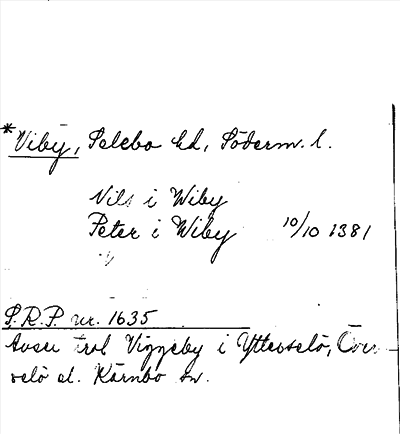 *Viby, Selebo hd, Söderm. l.
Nils i Wiby
Peter i Wiby 10/10 1381
S.R.P. nr. 1635
Avser trol Viggeby i Ytterselö, Över-
selö el. Kärnbo sn.